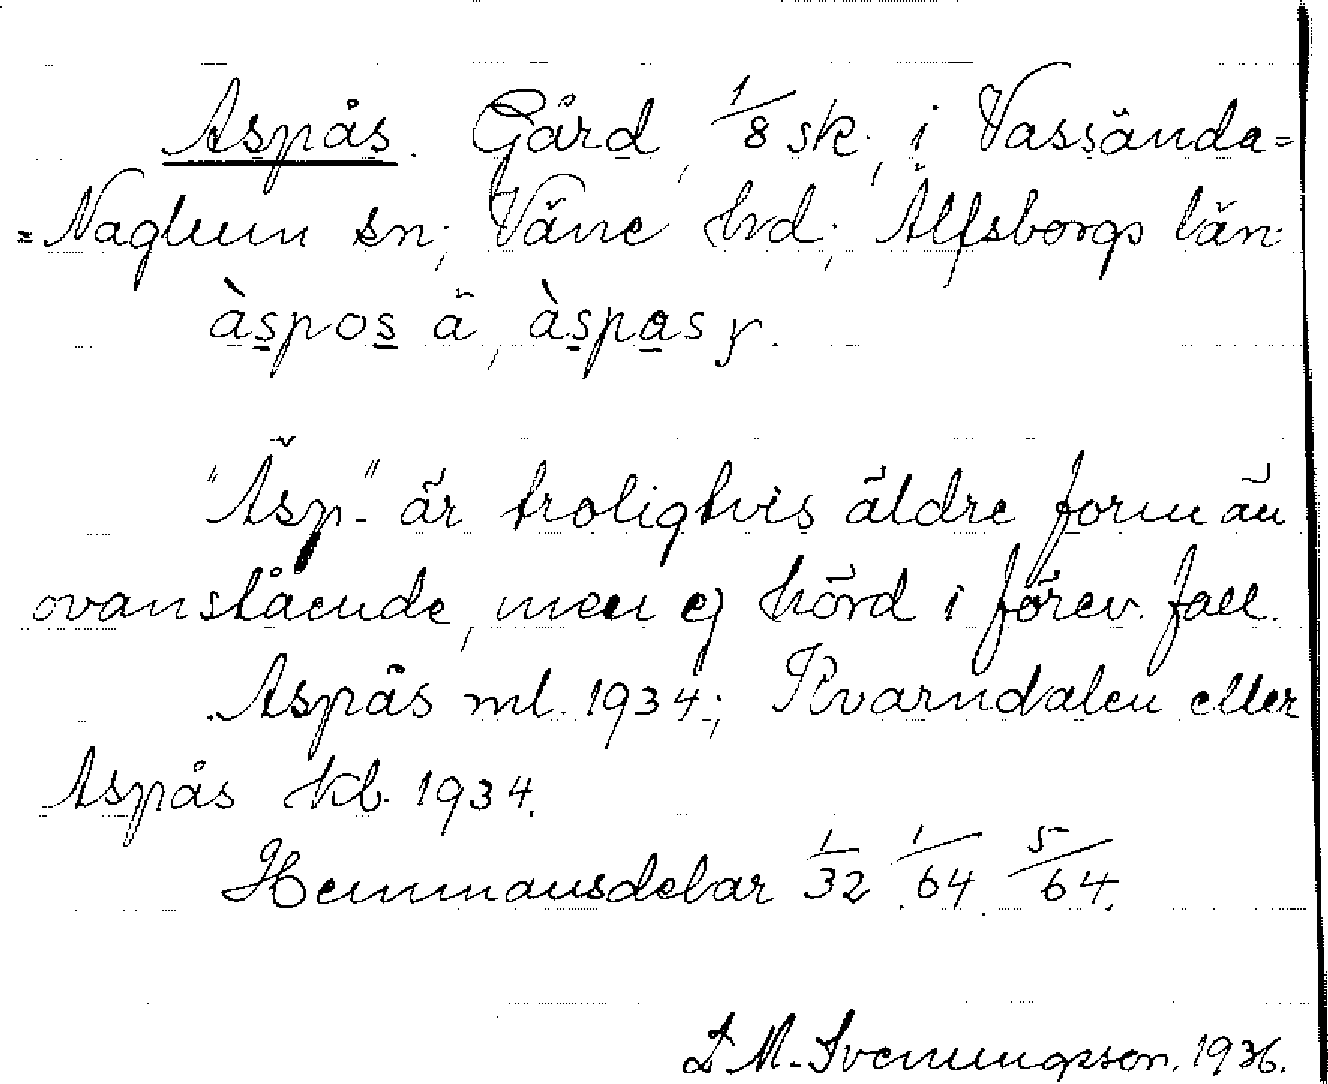 Aspås. Gård, 1/8 sk., i Vassända=
=Naglum sn; Väne hd; Älfsborgs län:
àspos ä, àspas y.
"Äsp-" är troligtvis äldre form än
ovanstående, men ej hörd i förev. fall.
Aspås ml. 1934; Kvarndalen eller
Aspås kb. 1934.
Hemmansdelar 1/32 1/64 5/64.
D. M. Svenungsson. 1936.